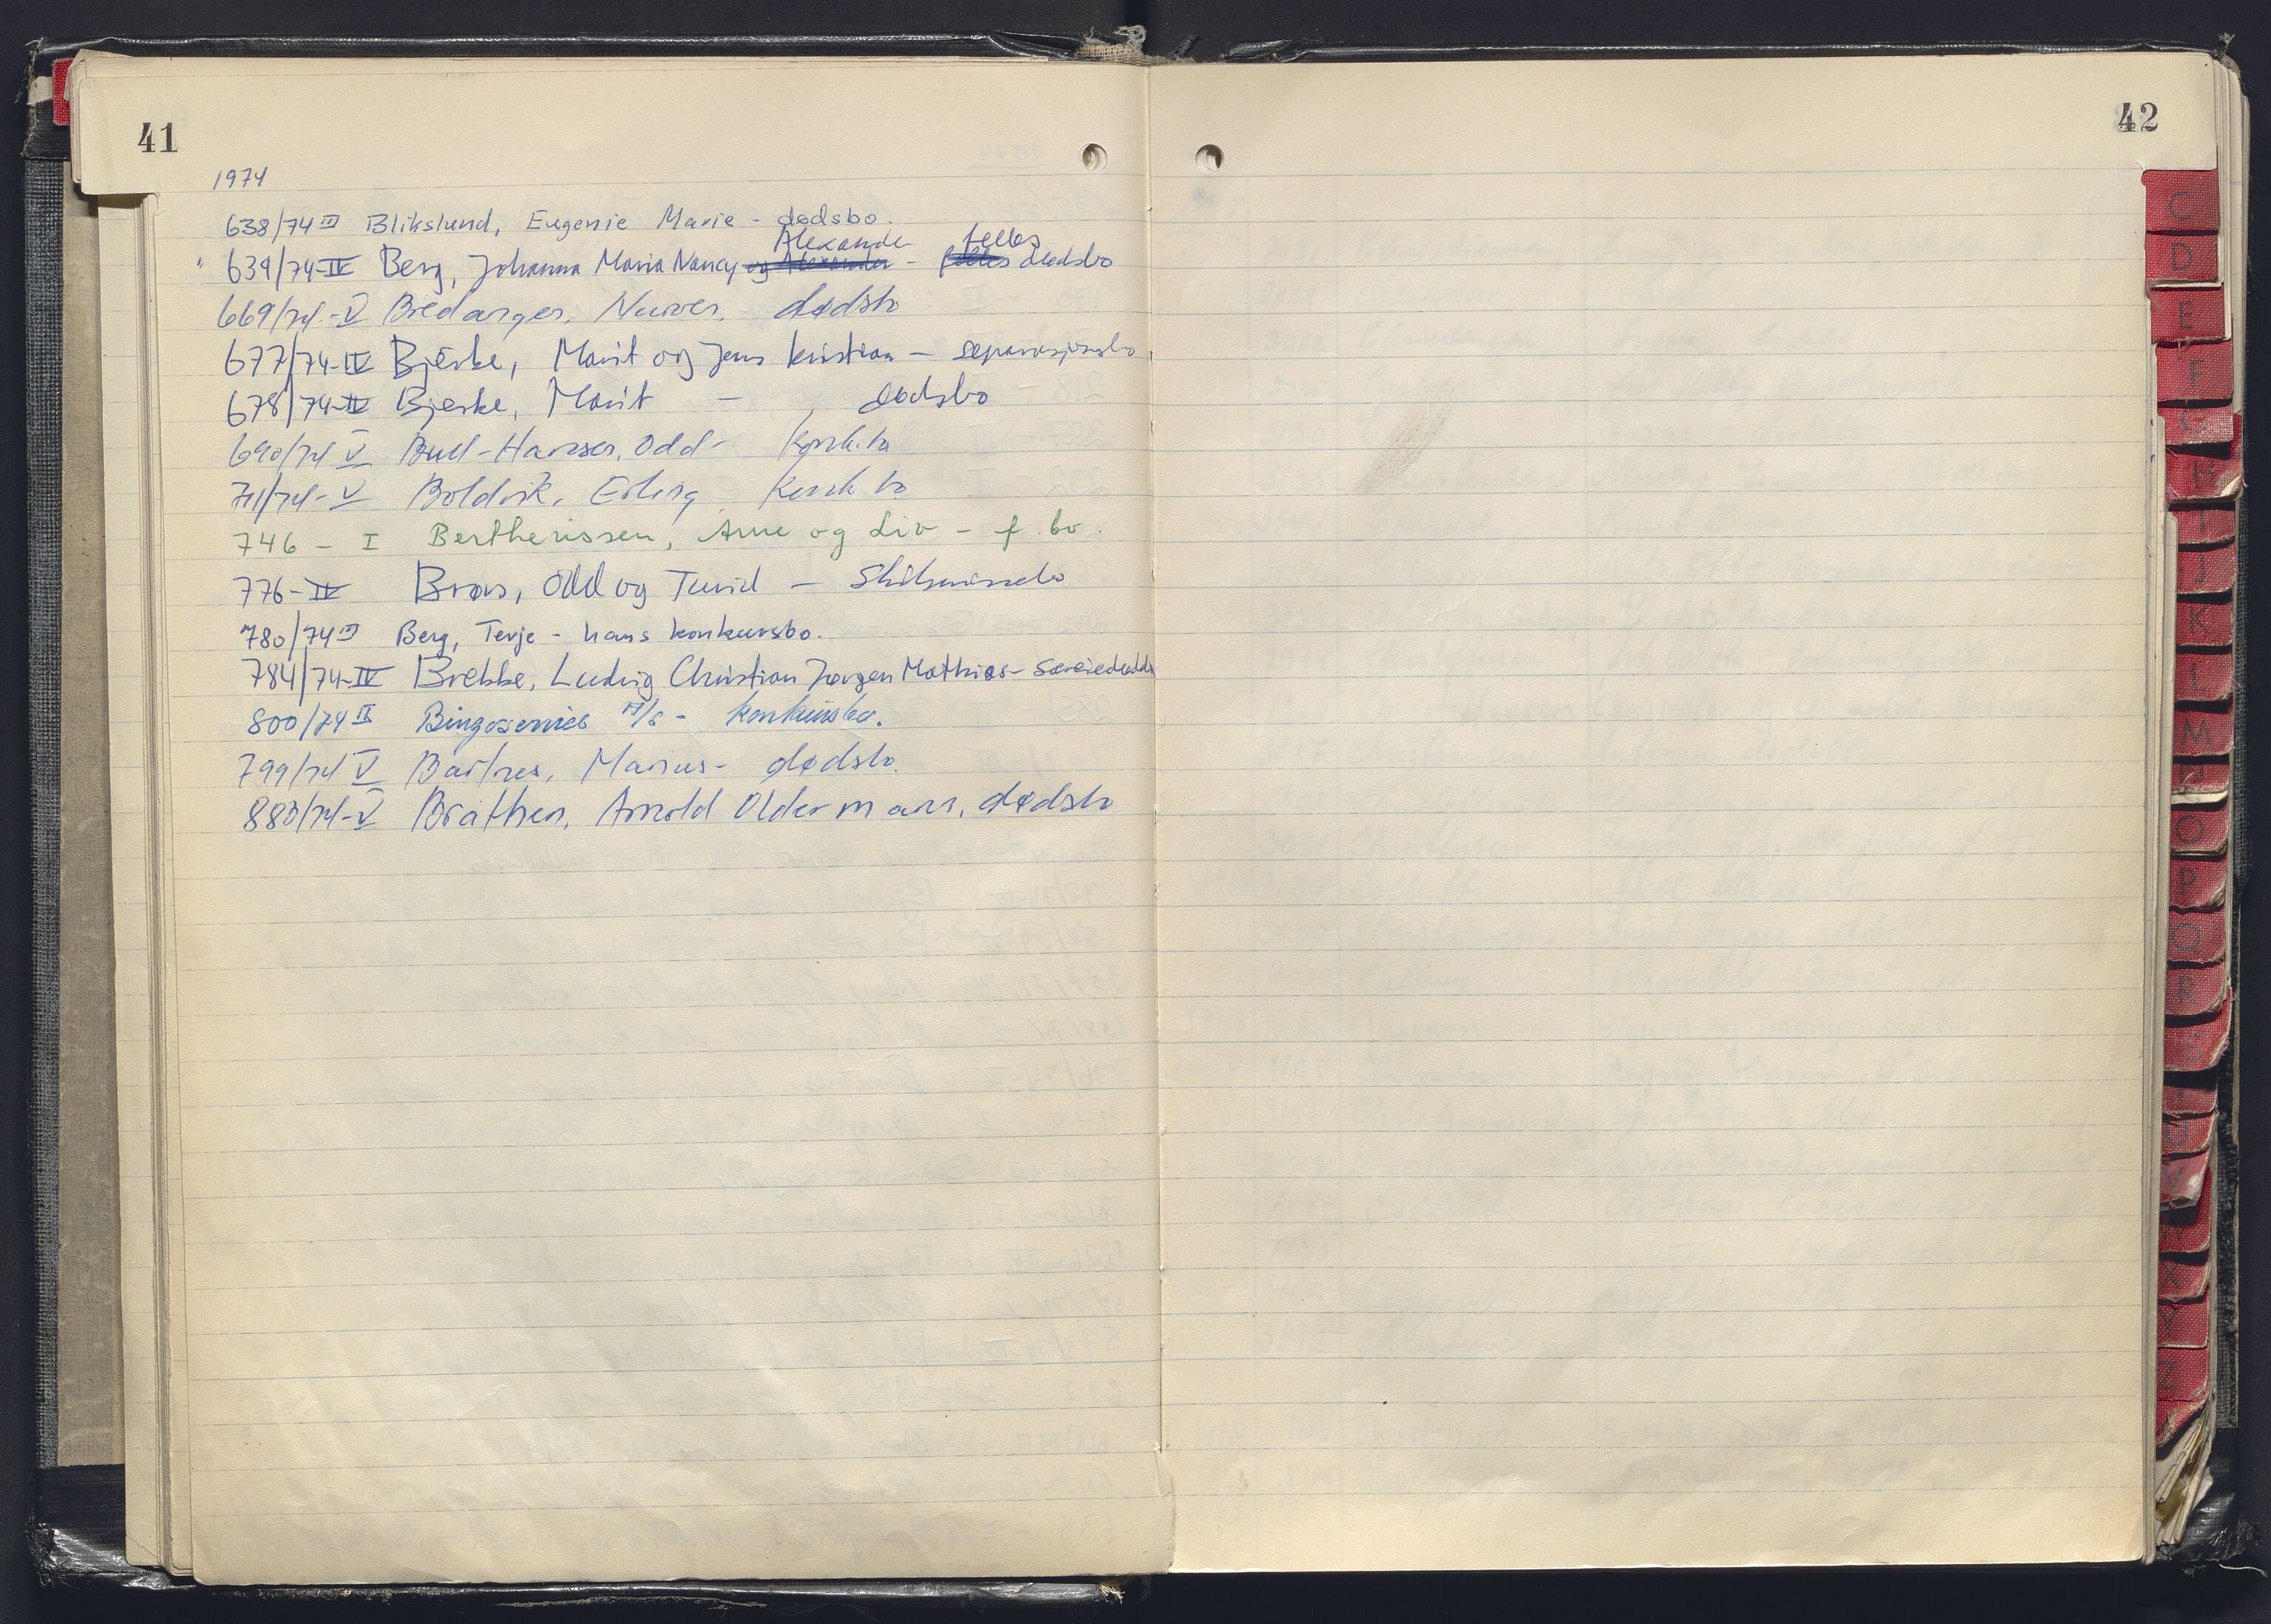 41
42
1974
638/74 III Blikslund, Eugenie Marie - dødsbo.
Alexander felles
639/74-IV Berg, Johanna Maria Nancy og Alexander - felles dødsbo
669/74-V Bredanger, Nurver, dødsbo
677/74-IV Bjerke, Marit og Jens Kristian - separasjonsbo
678/74-IV Bjerke, Marit - , dødsbo
690/74 V Bull-Hansen, Odd - Konk.bo
711/74-V Boldvik, Erling, Konk bo
746 - I Berthenissen, Arne og Liv - f. bo.
776-IV Brøvs, Odd og Turid - Skilsmissebo
780/74 III Berg, Terje - hans konkursbo.
784/74-IV Brebbe, Ludvig Christian Jørgen Mathias - Særeiedødsbo
800/74 II Bingoservice A/S - konkursbo.
799/74 V Marius - dødsbo.
883/74-V Bråthen, Arnold Oldermann, dødsbo
C
D
E
F
H
I
J
K
L
M
N
O
P
Q
R
U
X
Y
Z